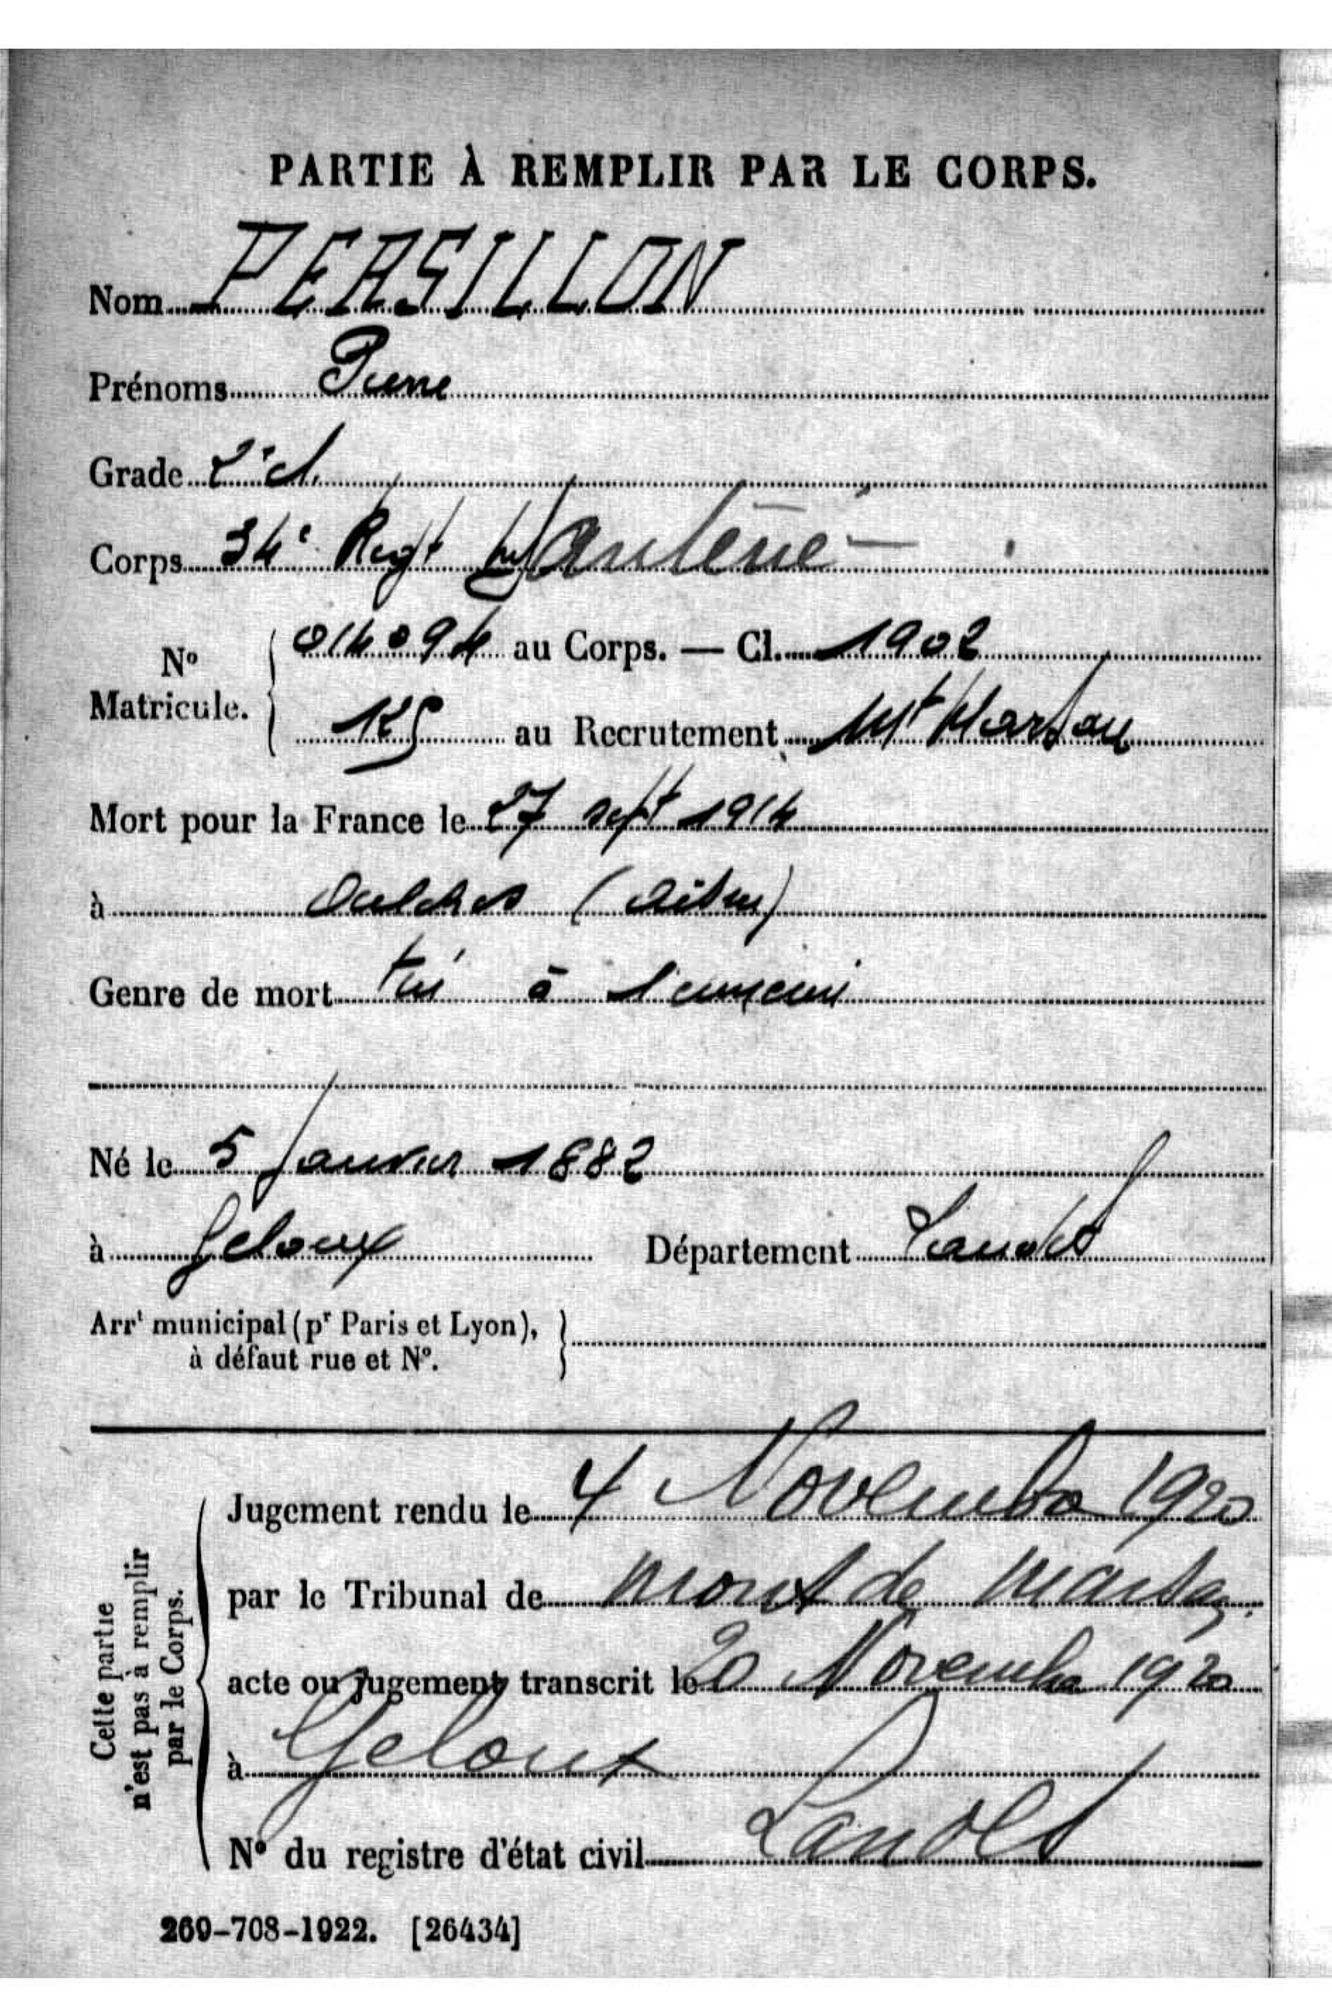 PARTIE À REMPLIR PAR LE CORPS.
Nom PERSILLON
Prénoms Pierre
Grade 2e cl.
Corps 34e Regt Inf
N° Matricule. 014094 au Corps. — Cl. 1902
125 au Recrutement Mt Marsan
Mort pour la France le 27 sept 1914
à Oulches (Aisne)
Genre de mort tué à l'ennemi
Né le 5 Janvier 1882
à Geloux Département Landes
Arrt municipal (pr Paris et Lyon),
à défaut rue et N°.
Cette partie
n'est pas à remplir
par le Corps.
Jugement rendu le 4 Novembre 1920
par le Tribunal de Mont de Marsan
acte ou jugement transcrit le 20 Novembre 1920
à Geloux
N° du registre d'état civil Landes
269-708-1922. [26434]